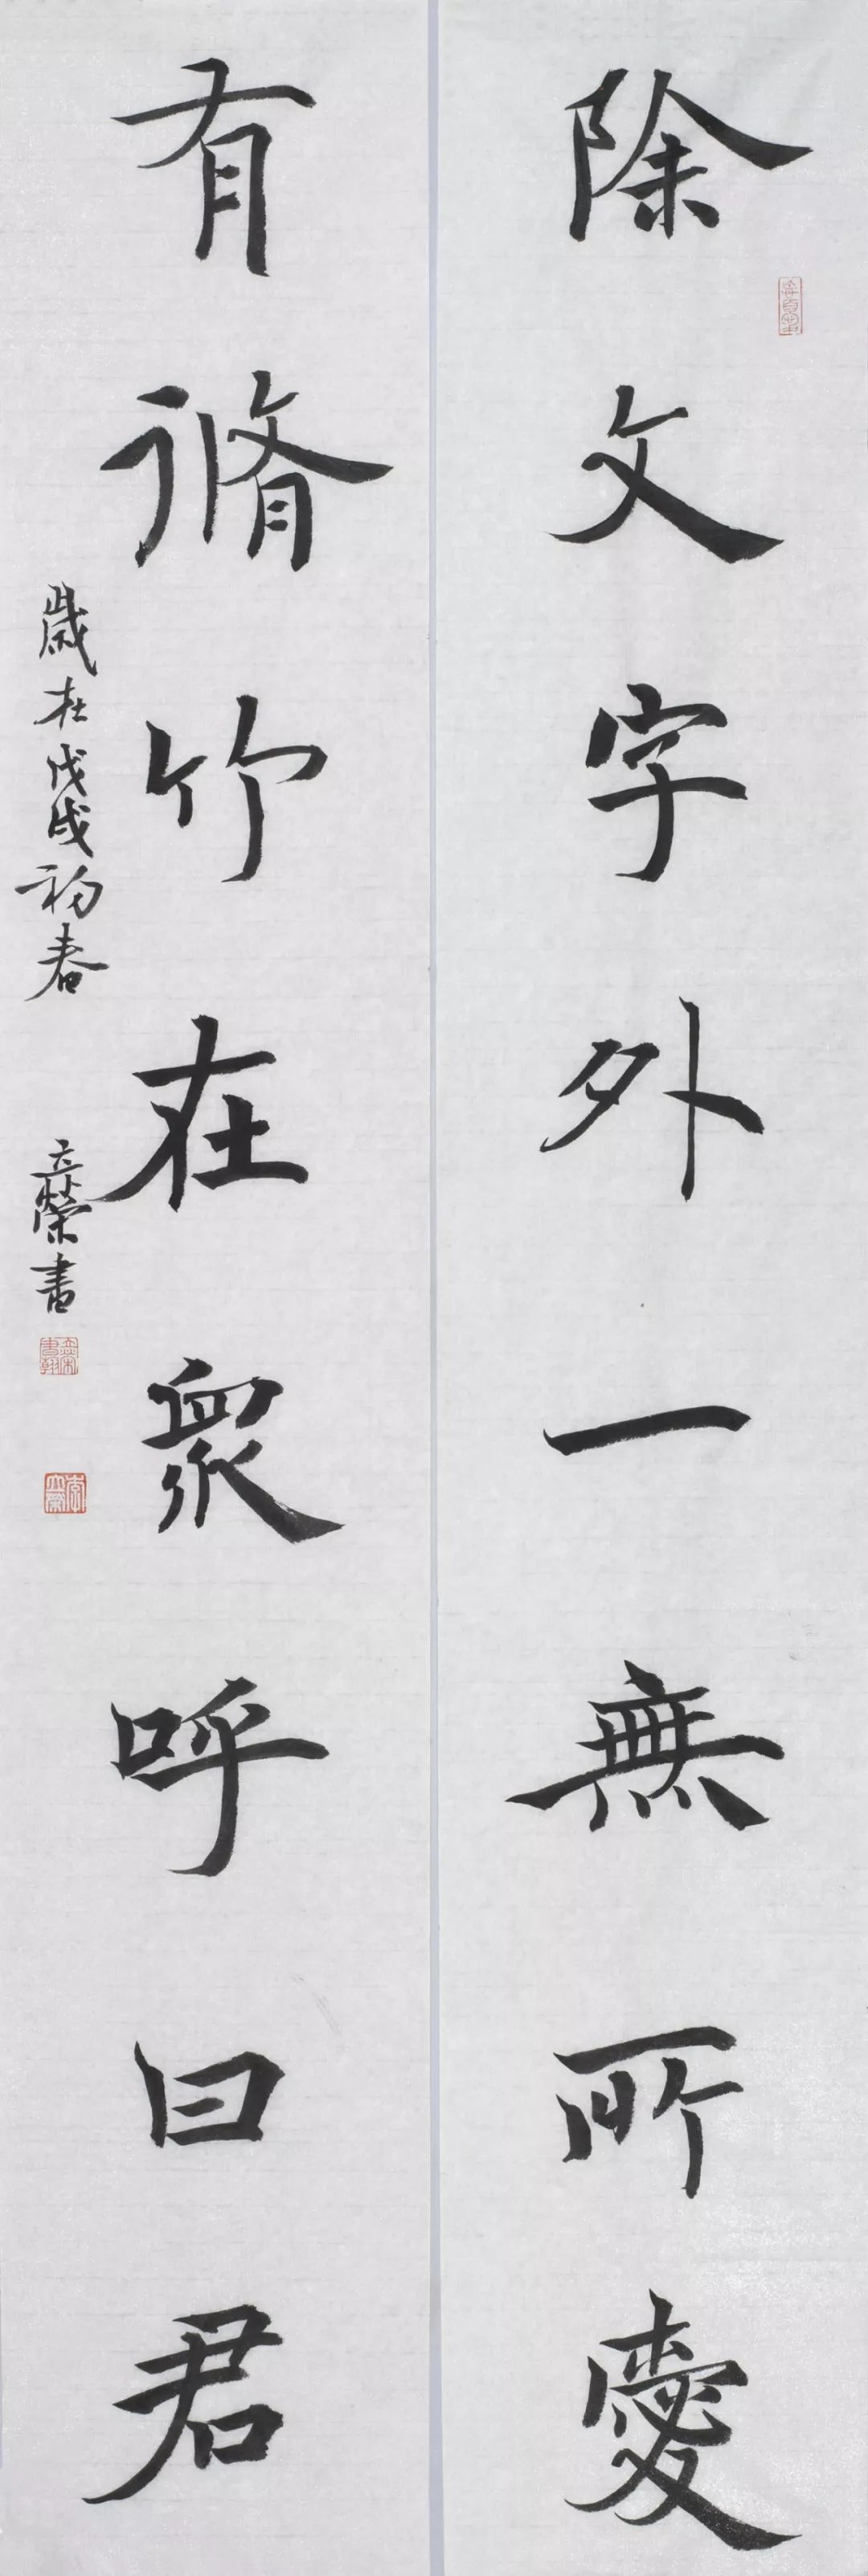 除文字外一無所愛
有脩竹在眾呼曰君
歲在戊戌初春
立榮書